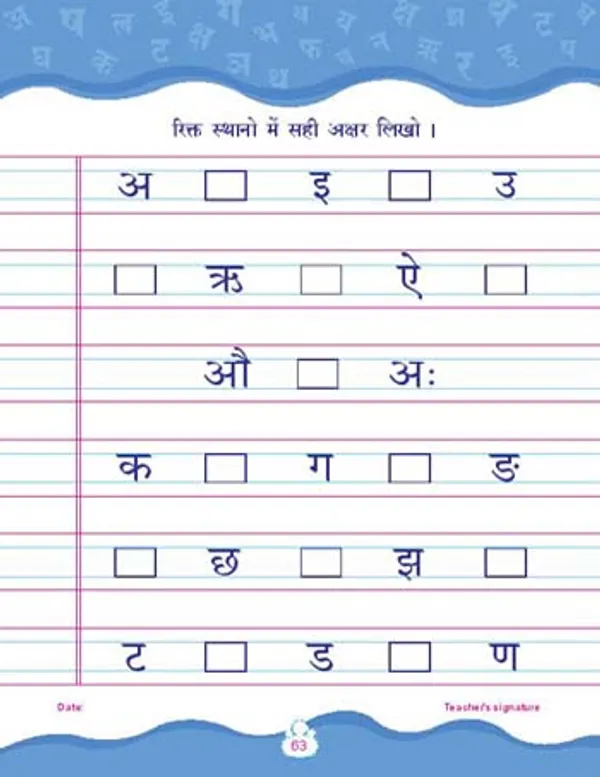 रिक्त स्थानो में सही अक्षर लिखो ।
अ इ उ
ऋ ऐ
औ अः
क ग ङ
छ झ
ट ड ण
Date: Teacher's signature
63